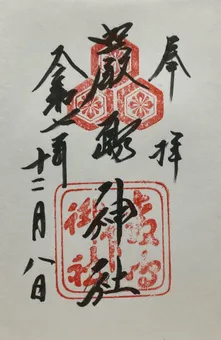 奉拝
厳島神社
令和元年
十二月八日